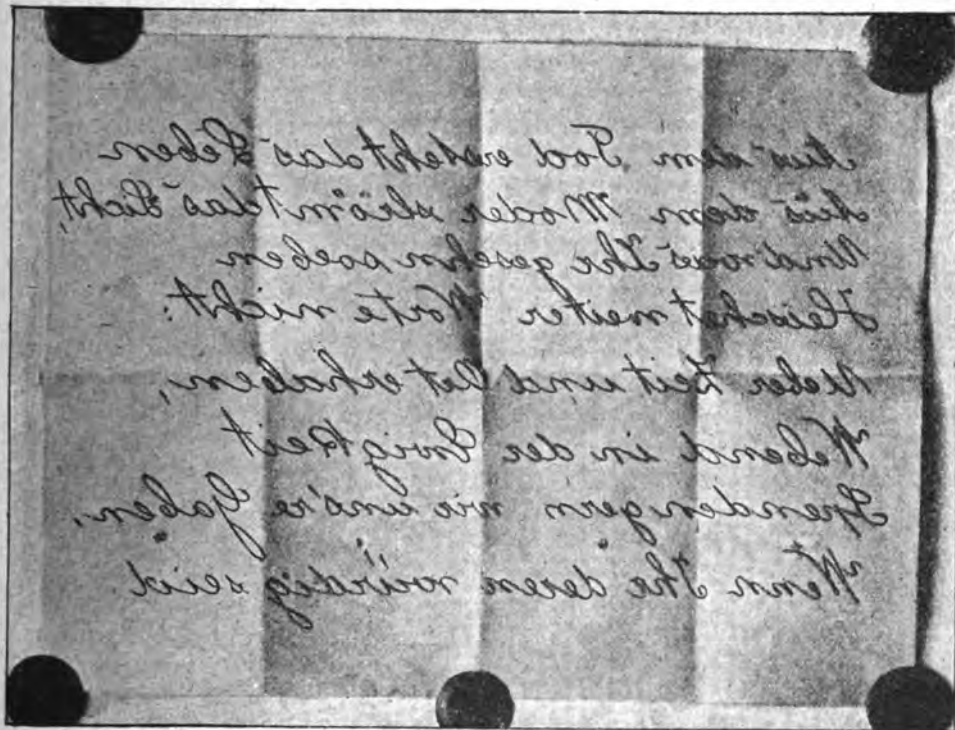 Aus dem Tod ersteht das Leben
Aus dem Moder strömt das Licht,
Und was Ihr gesehn soeben
Heischet weiter Worte nicht:
Ueber Zeit und Ort erhaben,
Webend in der Ewigkeit
Spenden gern wir uns're Gaben,
Wenn Ihr deren würdig seid